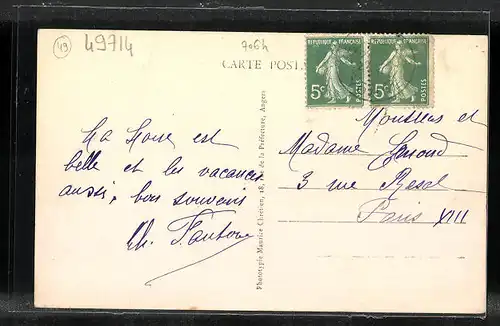 49
49714
706h
CARTE POSTALE
REPUBLIQUE FRANÇAISE
5c
POSTES
REPUBLIQUE FRANÇAISE
5c
POSTES
La Loire est
belle et les vacances
aussi, bon souvenir
Ch.
Phototypie Maurice Chrétien, 18, rue de la Préfecture, Angers
et
Madame
3 rue
Paris XIII